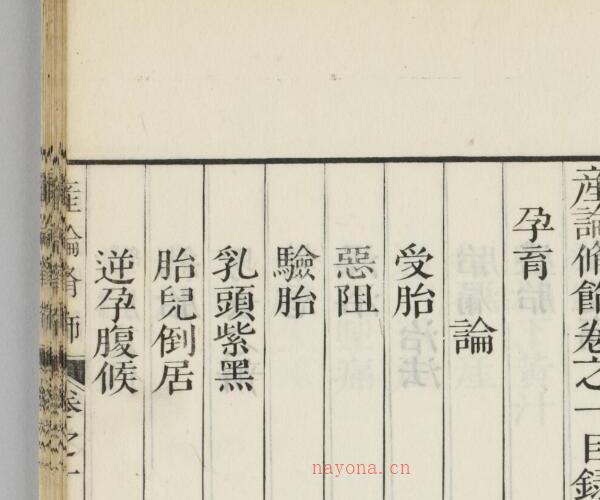 産論脩飾卷之一目錄
孕育
論
受胎
惡阻
驗胎
乳頭紫黑
胎兒倒居
逆孕腹候
産論脩飾
卷之一
nayona.cn